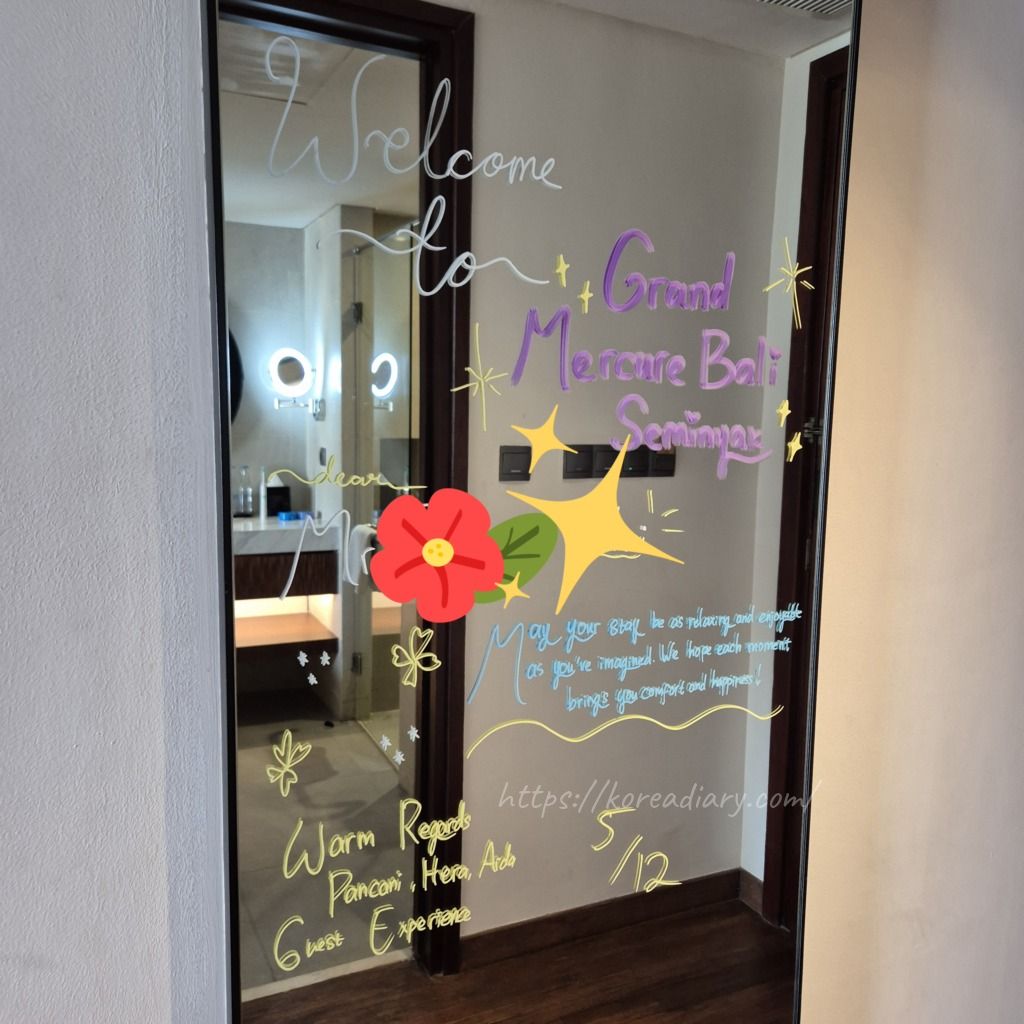 Welcome
to
Grand
Mercure Bali
Seminyak
dear
Mr
May your stay be as relaxing and enjoyable
as you've imagined. We hope each moment
brings you comfort and happiness!
https://koreadiary.com/
5/12
Warm Regards
Pancani, Hera, Aida
Guest Experience